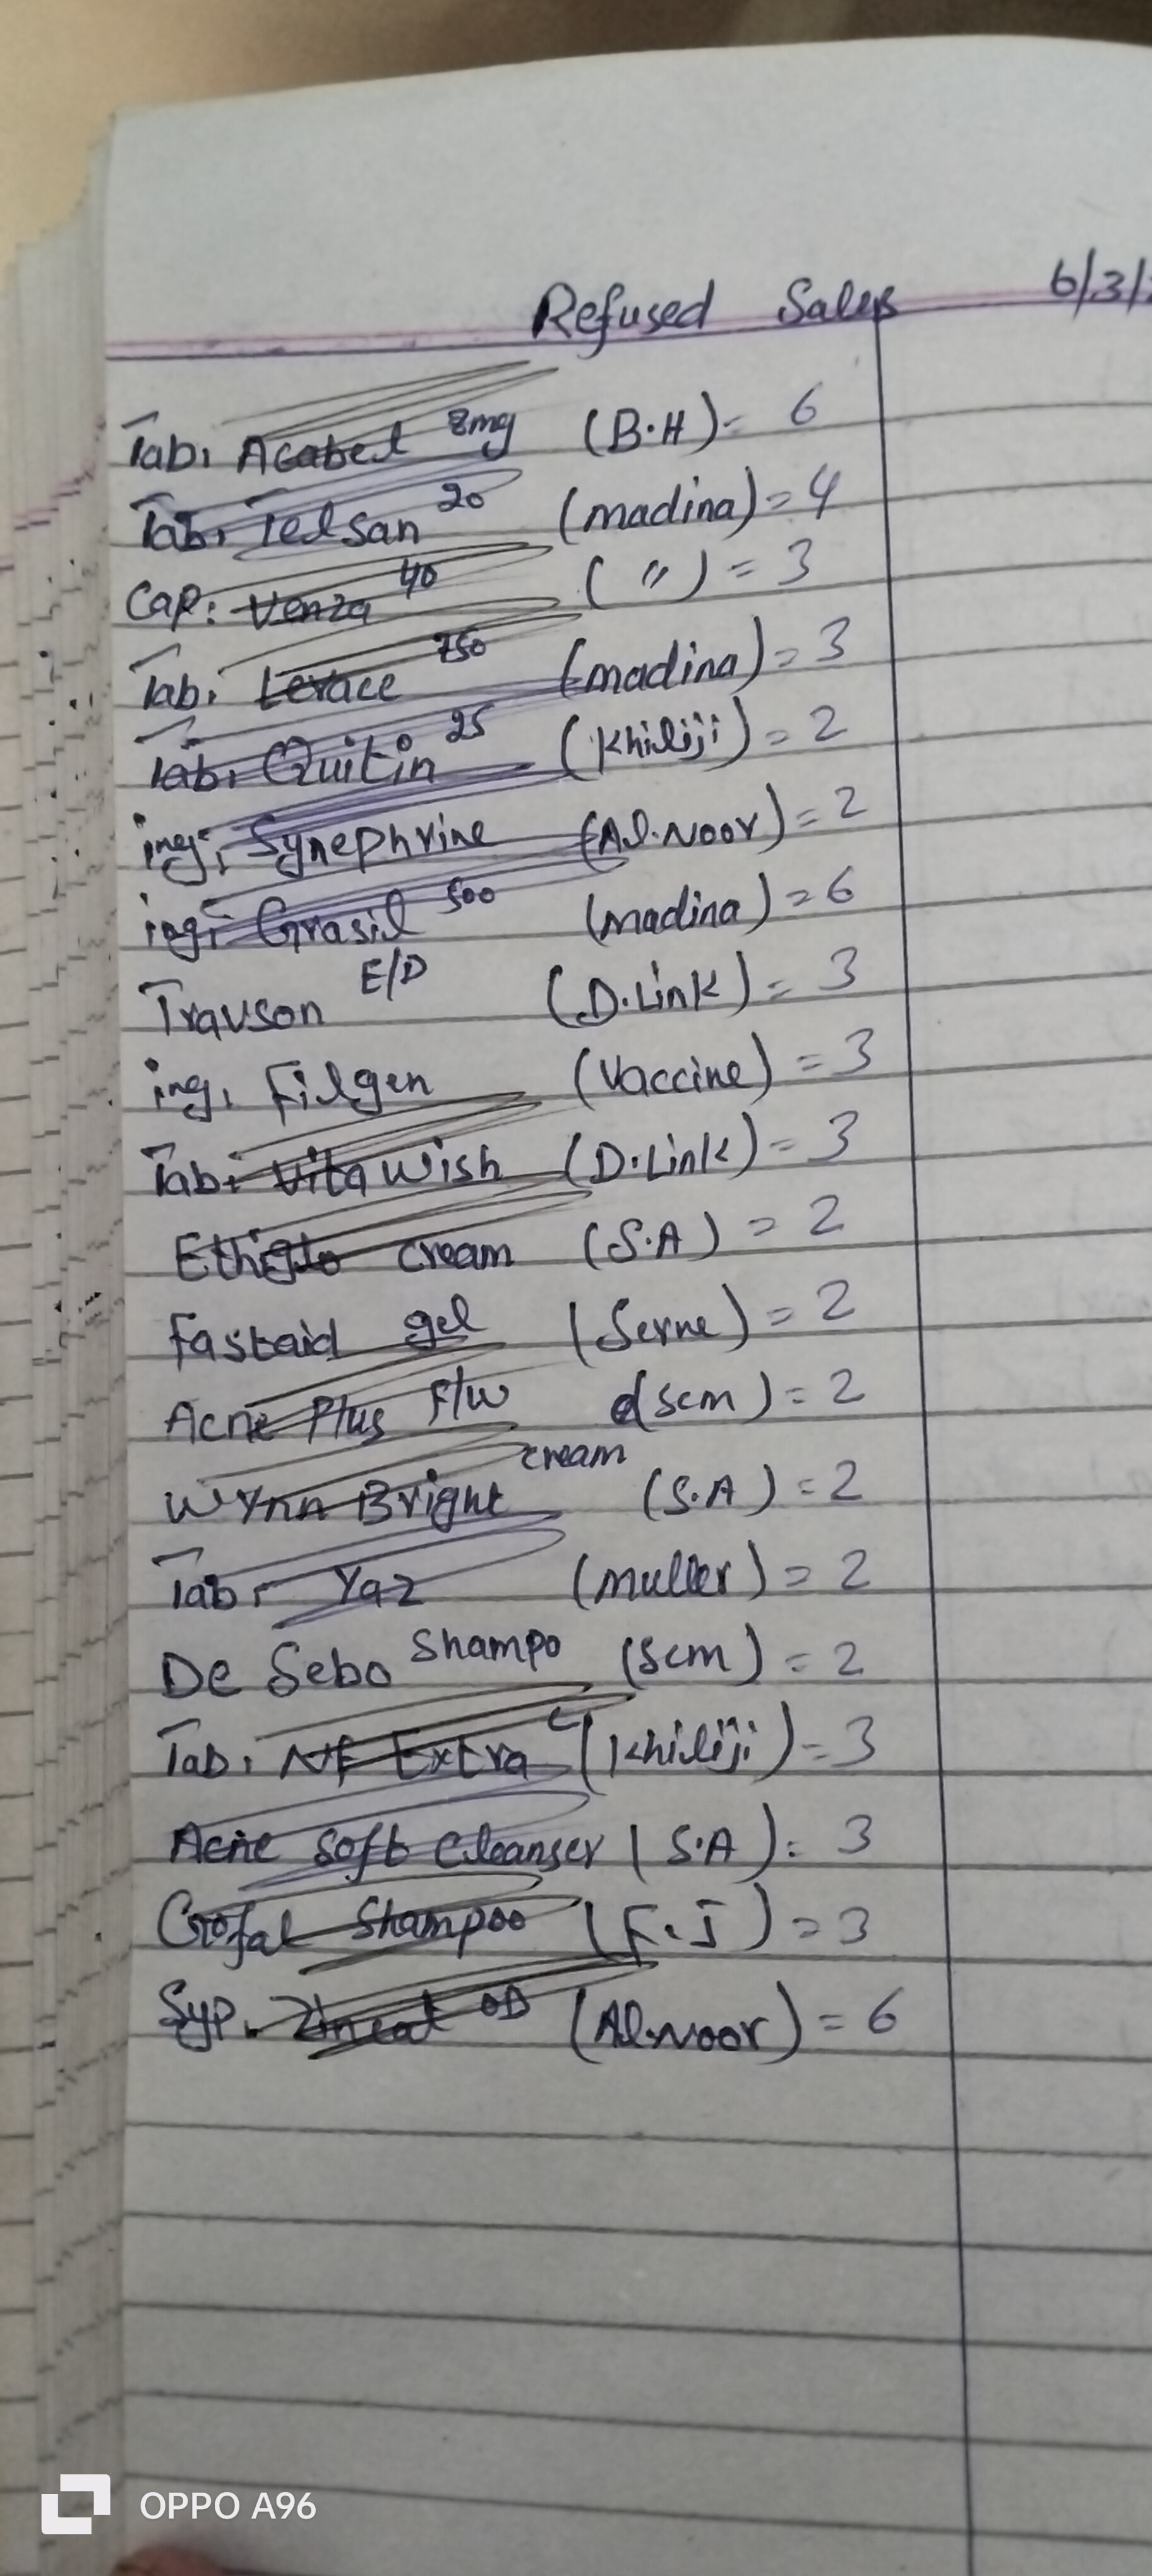 Refused Sales 6/3/
Tab. Acabel 8mg (B.H) - 6
Tab. Telsan 20 (madina) = 4
Cap: Venza 40 ( " ) = 3
Tab. Lerace 750 (madina) = 3
Tab. Quitin 25 (Khiliji) = 2
inj; Synephrine (Al.Noor) = 2
inj; Grasil 500 (madina) = 6
Travson E/D (D.Link) = 3
inj. Filgen (Vaccine) = 3
Tab. Vita Wish (D.Link) = 3
Ethiglo Cream (S.A) = 2
Fastaid gel (Serne) = 2
Acne Plus F/W (Scm) = 2
Wynn Bright cream (S.A) = 2
Tab. Yaz (muller) = 2
De Sebo Shampo (Scm) = 2
Tab. NF Extra (Khiliji) = 3
Acne Soft Cleanser (S.A) = 3
Shampoo (F.J) = 3
Syp. OD (Al.Noor) = 6
OPPO A96